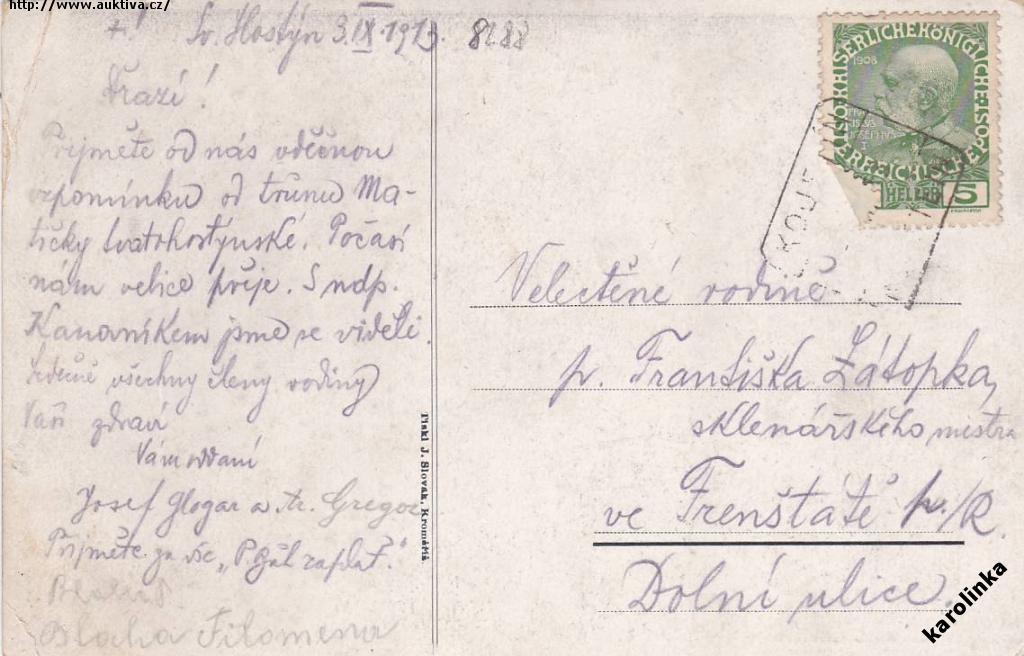 http://www.auktiva.cz/
Sv. Hostýn 3.IX.1913. 8288
Drazí!
Přijměte od nás vděčnou
vzpomínku od trůnu Ma-
tičky svatohostýnské. Počasí
nám velice přeje. S ndp.
Kanovníkem jsme se viděli.
Srdečně všechny členy rodiny
Vaší zdraví
Vám oddaní
Josef Glogar a Gregor
Přijměte za vše, "P. Bůh zaplať."
Blaha Filomena
Tiskl J. Slovák, Kroměříž
KAISERLICHE KÖNIGLICHE
1908
5 HELLER
Velectěné rodině
p. Františka Zátopka,
sklenářského mistra
ve Frenštátě p./R.
Dolní ulice.
karolinka